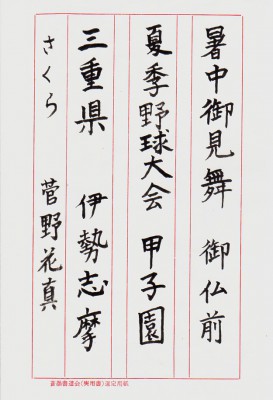 暑中御見舞 御仏前
夏季野球大会 甲子園
三重県 伊勢志摩
さくら 菅野花真